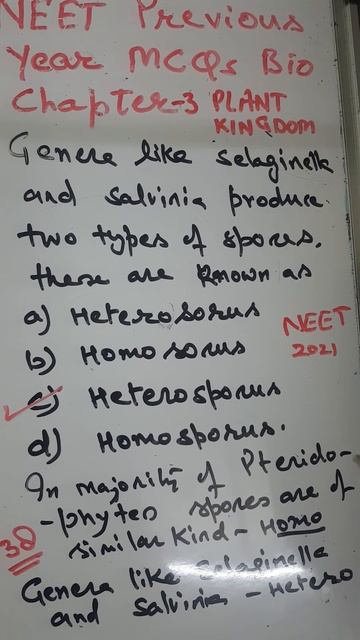 NEET Previous
Year MCQs Bio
Chapter-3 PLANT
KINGDOM
Genera like selaginella
and salvinia produce
two types of spores.
these are known as
a) Heterosorus
b) Homosorus
NEET
2021
c) Heterosporus
d) Homosporus.
In majority of Pterido-
-phytes spores are of
similar kind - Homo
38
Genera like Selaginella
and Salvinia - Hetero